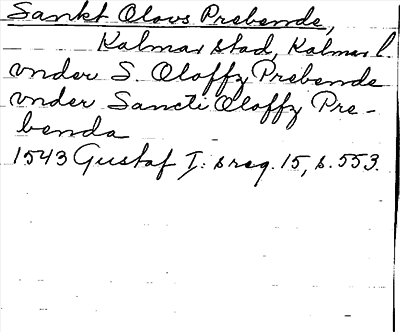 Sankt Olovs Prebende,
Kalmar stad, Kalmar l.
vnder S. Oloffz Prebende
vnder Sancti Oloffz Pre-
benda
1543 Gustaf I: s reg. 15, s. 553.